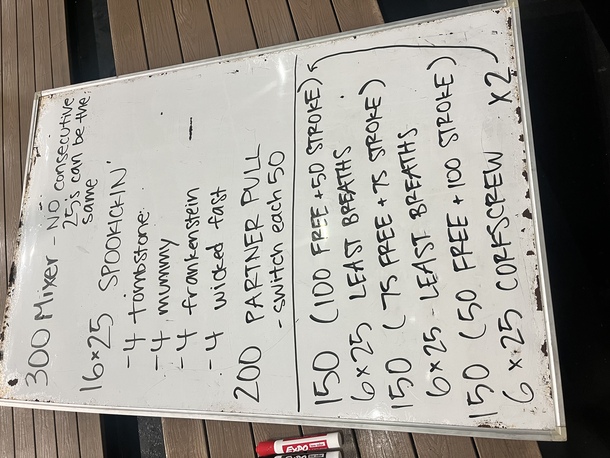 300 Mixer - NO consecutive
25's can be the
same
16x25 SPOOKICKIN'
-4 tombstone
-4 mummy
-4 frankenstein
-4 wicked fast
200 PARTNER PULL
- switch each 50
150 (100 FREE + 50 STROKE)
6x25 LEAST BREATHS
150 (75 FREE + 75 STROKE)
6x25 - LEAST BREATHS
150 (50 FREE + 100 STROKE)
6x25 CORKSCREW x2
EXPO